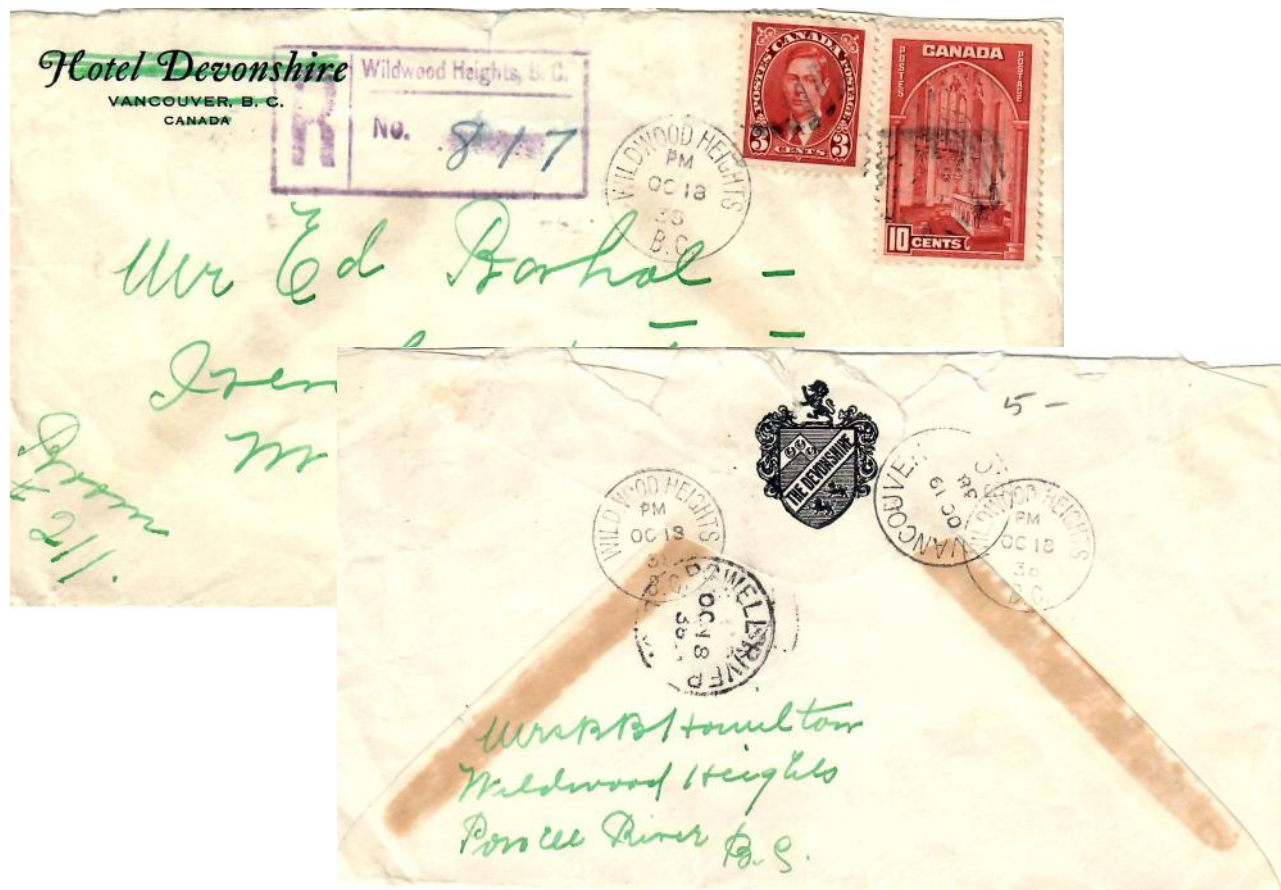 Hotel Devonshire
VANCOUVER, B. C.
CANADA
R
Wildwood Heights, B. C.
No. 817
WILDWOOD HEIGHTS
PM
OC 18
38
B.C.
POSTES CANADA POSTAGE
3 CENTS 3
CANADA
POSTES POSTAGE
10 CENTS
Mr Ed
Room
112
5-
THE DEVONSHIRE
WILDWOOD HEIGHTS
PM
OC 18
38
B.C.
POWELL RIVER
OC 18
38
VANCOUVER
OC 19
38
WILDWOOD HEIGHTS
PM
OC 18
38
B.C.
Hamilton
Wildwood Heights
Powell River B.C.